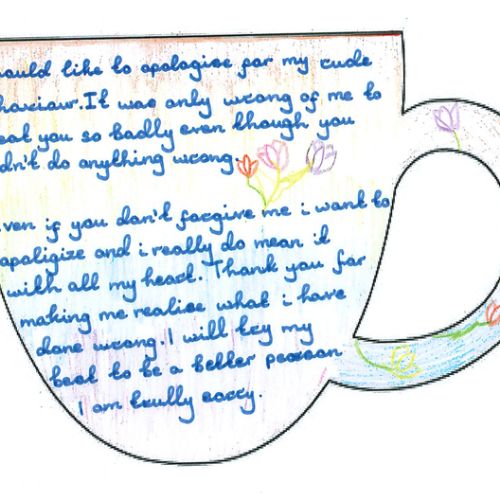 would like to apologise for my rude
haviour. It was only wrong of me to
eat you so badly even though you
dn't do anything wrong.
ven if you don't forgive me i want to
apoligize and i really do mean it
with all my heart. Thank you for
making me realise what i have
done wrong. I will try my
best to be a better person
I am trully sorry.